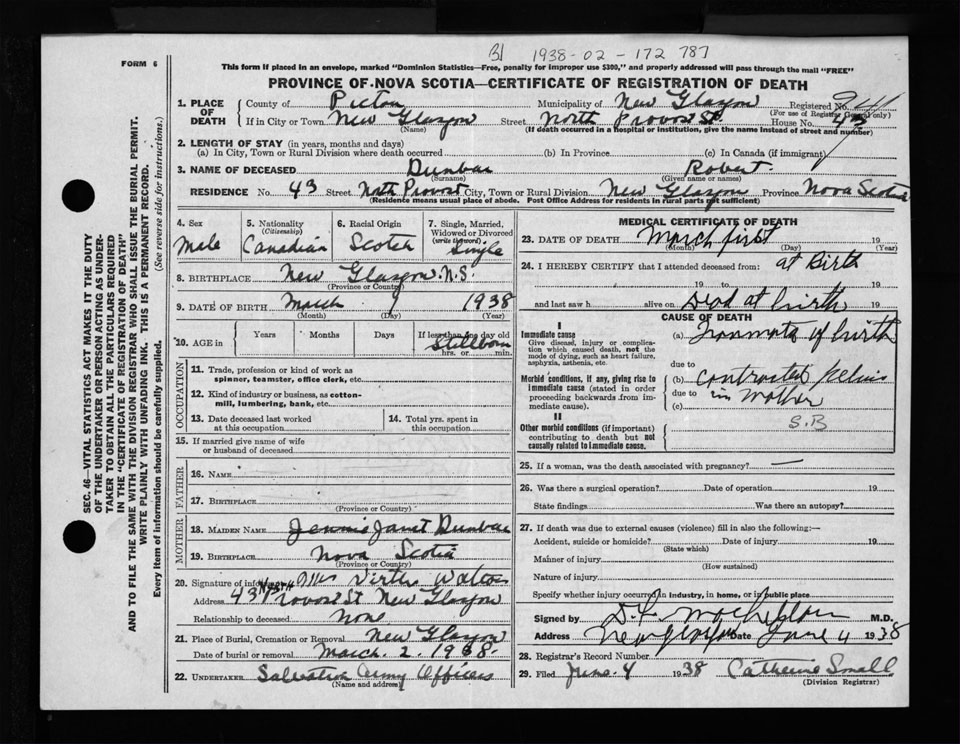 B1 1938-02-172 787
FORM 6
This form if placed in an envelope, marked "Dominion Statistics—Free, penalty for improper use $300," and properly addressed will pass through the mail "FREE"
PROVINCE OF NOVA SCOTIA—CERTIFICATE OF REGISTRATION OF DEATH
1. PLACE OF DEATH
County of Pictou Municipality of New Glasgow Registered No. 941
(For use of Registrar General only)
If in City or Town New Glasgow Street North Provost St. House No. 43
(Name) (If death occurred in a hospital or institution, give the name instead of street and number)
2. LENGTH OF STAY (in years, months and days)
(a) In City, Town or Rural Division where death occurred (b) In Province (c) In Canada (if immigrant)
3. NAME OF DECEASED Dunbar Robert
(Surname) (Given name or names)
RESIDENCE No. 43 Street North Provost City, Town or Rural Division New Glasgow Province Nova Scotia
(Residence means usual place of abode. Post Office Address for residents in rural parts not sufficient)
4. Sex Male
5. Nationality (Citizenship) Canadian
6. Racial Origin Scotch
7. Single, Married, Widowed or Divorced (write the word) Single
8. BIRTHPLACE New Glasgow N.S.
(Province or Country)
9. DATE OF BIRTH March 1 1938
(Month) (Day) (Year)
10. AGE in Years Months Days If less than one day old
Stillborn
hrs. or min.
OCCUPATION
11. Trade, profession or kind of work as spinner, teamster, office clerk, etc.
12. Kind of industry or business, as cotton-mill, lumbering, bank, etc.
13. Date deceased last worked at this occupation
14. Total yrs. spent in this occupation
15. If married give name of wife or husband of deceased
FATHER
16. NAME
17. BIRTHPLACE
(Province or Country)
MOTHER
18. MAIDEN NAME Jennie Janet Dunbar
19. BIRTHPLACE Nova Scotia
(Province or Country)
20. Signature of informant Mrs Walters
Address 43 North Provost St New Glasgow
Relationship to deceased None
21. Place of Burial, Cremation or Removal New Glasgow
Date of burial or removal March 2 1938
22. UNDERTAKER Salvation Army Officers
(Name and address)
MEDICAL CERTIFICATE OF DEATH
23. DATE OF DEATH March first 19
(Month) (Day) (Year)
24. I HEREBY CERTIFY that I attended deceased from: at Birth
19 to 19
and last saw h alive on Dead at birth 19
CAUSE OF DEATH
I
Immediate cause
Give disease, injury or complication which caused death, not the mode of dying, such as heart failure, asphyxia, asthenia, etc.
(a) of birth
due to
Morbid conditions, if any, giving rise to immediate cause (stated in order proceeding backwards from immediate cause).
(b) contracted pelvis
due to in mother
(c)
II
Other morbid conditions (if important) contributing to death but not causally related to immediate cause.
S.B
25. If a woman, was the death associated with pregnancy?
26. Was there a surgical operation? Date of operation 19
State findings Was there an autopsy?
27. If death was due to external causes (violence) fill in also the following:—
Accident, suicide or homicide? Date of injury 19
(State which)
Manner of injury
(How sustained)
Nature of injury
Specify whether injury occurred in industry, in home, or in public place
Signed by M.D.
Address New Glasgow Date June 4 1938
28. Registrar's Record Number
29. Filed June 4 1938 Catherine Small
(Division Registrar)
SEC. 46—VITAL STATISTICS ACT MAKES IT THE DUTY
OF THE UNDERTAKER OR PERSON ACTING AS UNDER-
TAKER TO OBTAIN ALL THE PARTICULARS REQUIRED
IN THE "CERTIFICATE OF REGISTRATION OF DEATH"
AND TO FILE THE SAME WITH THE DIVISION REGISTRAR WHO SHALL ISSUE THE BURIAL PERMIT.
WRITE PLAINLY WITH UNFADING INK. THIS IS A PERMANENT RECORD.
Every item of information should be carefully supplied. (See reverse side for instructions.)